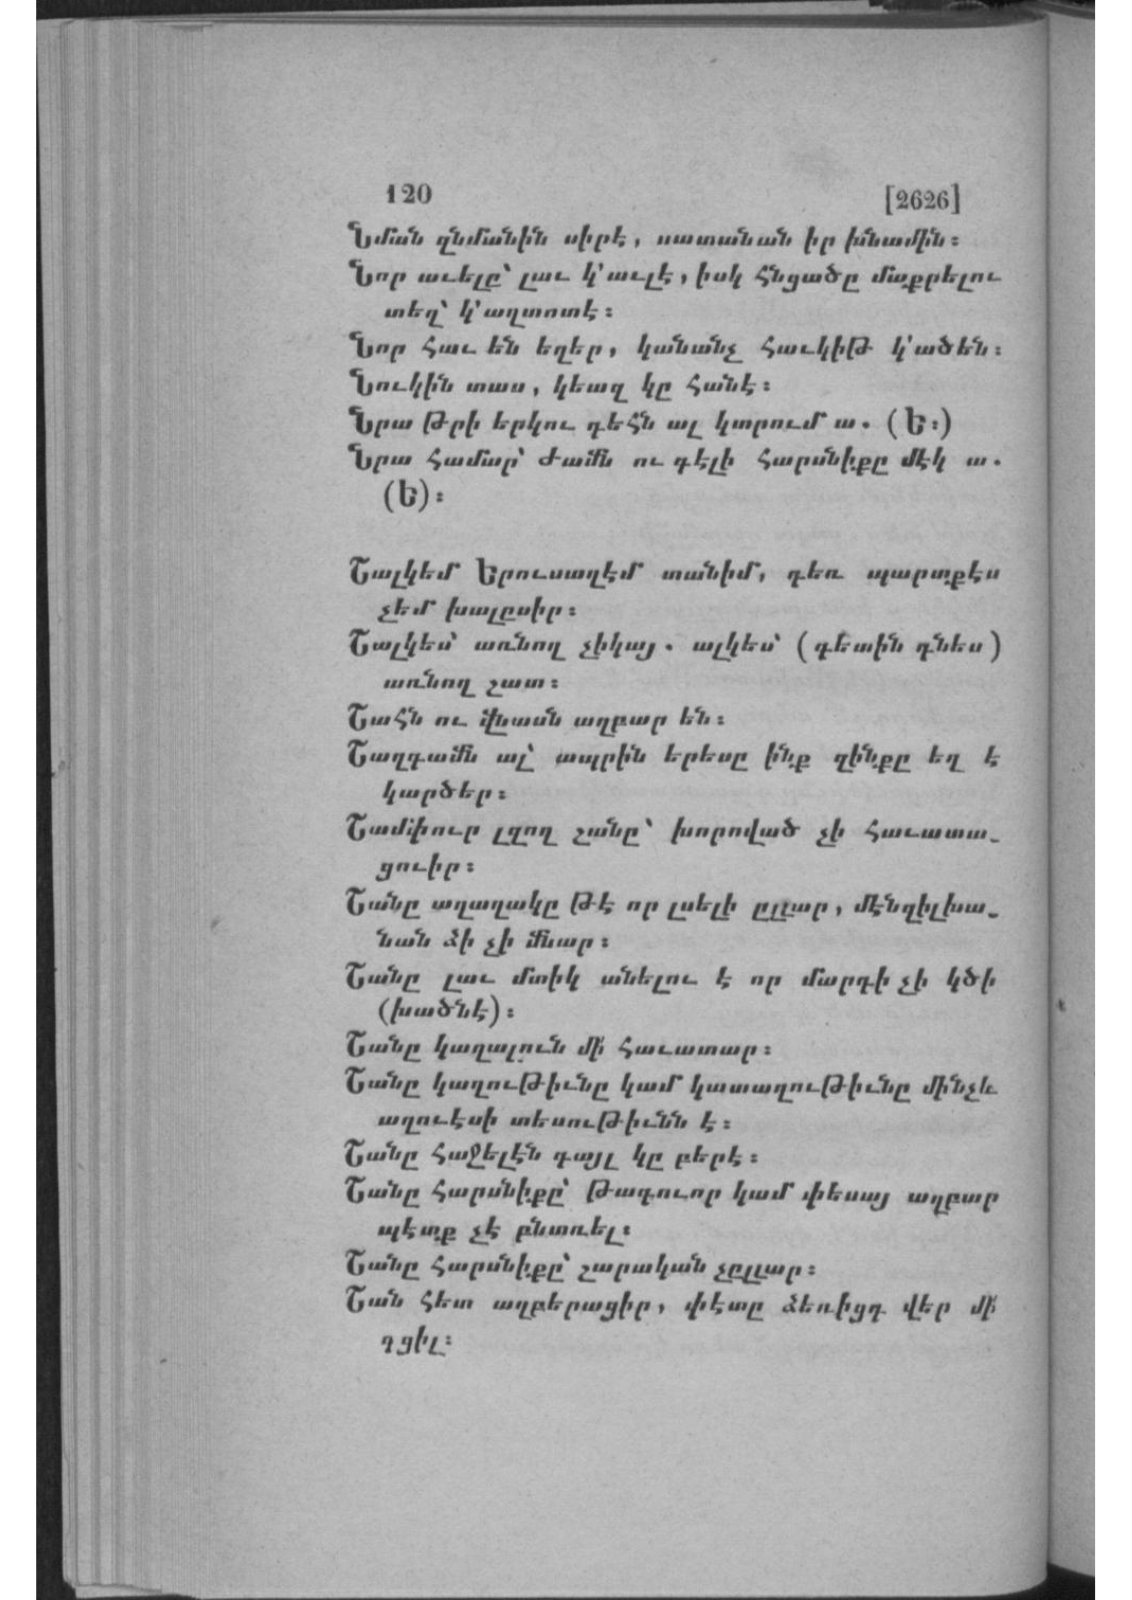 120 [2626]
Նման զնմանին սիրէ, սատանան իր խնամին։
Նոր աւելը՝ լաւ կ՚աւլէ, իսկ հնցածը մաքրելու
տեղ՝ կ՚աղտոտէ։
Նոր հաւ են եղեր, կանանչ հաւկիթ կ՚ածեն։
Նուկին տաս, կեազ կը հանէ։
Նրա թրի երկու դեհն ալ կտրում ա. (Ե։)
Նրա համար՝ ժամն ու գէլի հարսնիքը մէկ ա.
(Ե)։
Շալկեմ Երուսաղէմ տանիմ, դեռ պարտքէս
չեմ խալըսիր։
Շալկես՝ առնող չիկայ. ալկես՝ (գետին դնես)
առնող շատ։
Շահն ու վնասն աղբար են։
Շաղգամն ալ՝ ապրին երեսը ինք զինքը եղ է
կարծեր։
Շամփուր լզող շանը՝ խորոված չի հաւատա֊
ցուիր։
Շանը աղաղակը թէ որ լսելի ըլլար, մէնզիլխա֊
նան ձի չի մնար։
Շանը լաւ մտիկ անելու է որ մարդի չի կծի
(խածնէ)։
Շանը կաղալուն մի հաւատար։
Շանը կաղութիւնը կամ կատաղութիւնը մինչև
աղուէսի տեսութիւնն է։
Շանը հաջելէն գայլ կը բերէ։
Շանը հարսնիքը՝ թագուոր կամ փեսայ աղբար
պէտք չէ բնտռել։
Շանը հարսնիքը՝ շարական չըլլար։
Շան հետ աղբերացիր, փէտը ձեռիցդ վեր մի
դցիլ։